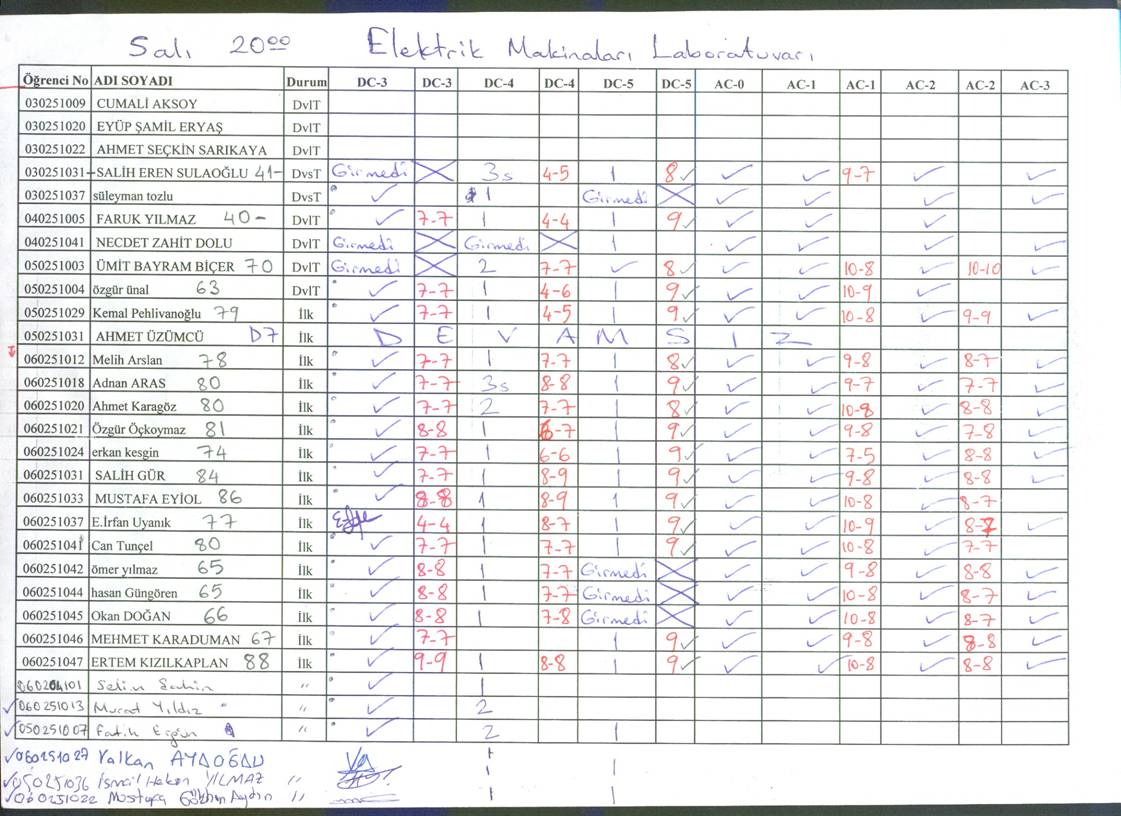 Salı 20⁰⁰ Elektrik Makinaları Laboratuvarı
Öğrenci No ADI SOYADI Durum DC-3 DC-3 DC-4 DC-4 DC-5 DC-5 AC-0 AC-1 AC-1 AC-2 AC-2 AC-3
030251009 CUMALİ AKSOY DvlT
030251020 EYÜP ŞAMİL ERYAŞ DvlT
030251022 AHMET SEÇKİN SARIKAYA DvlT
030251031 SALİH EREN SULAOĞLU 41- DvsT Girmedi X 3s 4-5 1 8✓ ✓ ✓ 9-7 ✓ ✓
030251037 süleyman tozlu DvsT ✓ 1 Girmedi X ✓ ✓ ✓ ✓
040251005 FARUK YILMAZ 40- DvlT ✓ 7-7 1 4-4 1 9✓ ✓ ✓ ✓
040251041 NECDET ZAHİT DOLU DvlT Girmedi X Girmedi X 1 ✓ ✓ ✓ ✓
050251003 ÜMİT BAYRAM BİÇER 70 DvlT Girmedi X 2 7-7 ✓ 8✓ ✓ ✓ 10-8 ✓ 10-10 ✓
050251004 özgür ünal 63 DvlT ✓ 7-7 1 4-6 1 9✓ ✓ ✓ 10-9 ✓
050251029 Kemal Pehlivanoğlu 79 İlk ✓ 7-7 1 4-5 1 9✓ ✓ ✓ 10-8 ✓ 9-9 ✓
050251031 AHMET ÜZÜMCÜ D7 İlk D E V A M S I Z
060251012 Melih Arslan 78 İlk ✓ 7-7 1 7-7 1 8✓ ✓ ✓ 9-8 ✓ 8-7 ✓
060251018 Adnan ARAS 80 İlk ✓ 7-7 3s 8-8 1 9✓ ✓ ✓ 9-7 ✓ 7-7 ✓
060251020 Ahmet Karagöz 80 İlk ✓ 7-7 2 7-7 1 8✓ ✓ ✓ 10-8 ✓ 8-8 ✓
060251021 Özgür Öçkoymaz 81 İlk ✓ 8-8 1 6-7 1 9✓ ✓ ✓ 9-8 ✓ 7-8 ✓
060251024 erkan kesgin 74 İlk ✓ 7-7 1 6-6 1 9✓ ✓ ✓ 7-5 ✓ 8-8 ✓
060251031 SALİH GÜR 84 İlk ✓ 7-7 1 8-9 1 9✓ ✓ ✓ 9-8 ✓ 8-8 ✓
060251033 MUSTAFA EYİOL 86 İlk ✓ 8-8 1 8-9 1 9✓ ✓ ✓ 10-8 ✓ 8-7 ✓
060251037 E.İrfan Uyanık 77 İlk 4-4 1 8-7 1 9✓ ✓ ✓ 10-9 ✓ 8-7 ✓
060251041 Can Tunçel 80 İlk ✓ 7-7 1 7-7 1 9✓ ✓ ✓ 10-8 ✓ 7-7
060251042 ömer yılmaz 65 İlk ✓ 8-8 1 7-7 Girmedi X ✓ ✓ 9-8 ✓ 8-8 ✓
060251044 hasan Güngören 65 İlk ✓ 8-8 1 7-7 Girmedi X ✓ ✓ 10-8 ✓ 8-7 ✓
060251045 Okan DOĞAN 66 İlk ✓ 8-8 1 7-8 Girmedi X ✓ ✓ 10-8 ✓ 8-7 ✓
060251046 MEHMET KARADUMAN 67 İlk ✓ 7-7 1 9✓ ✓ ✓ 9-8 ✓ 8-8 ✓
060251047 ERTEM KIZILKAPLAN 88 İlk ✓ 9-9 1 8-8 1 9✓ ✓ ✓ 10-8 ✓ 8-8 ✓
060204101 Selin Şahin " ✓ 1
✓ 060251013 Murat Yıldız " ✓ 2
✓ 050251007 Fatih Ergün " ✓ 2 1
✓ 060251027 Volkan AYDOĞDU 1
✓ 050251036 İsmail Hakan YILMAZ " 1 1
✓ 060251022 Mustafa Gökhan Aydın " 1 1